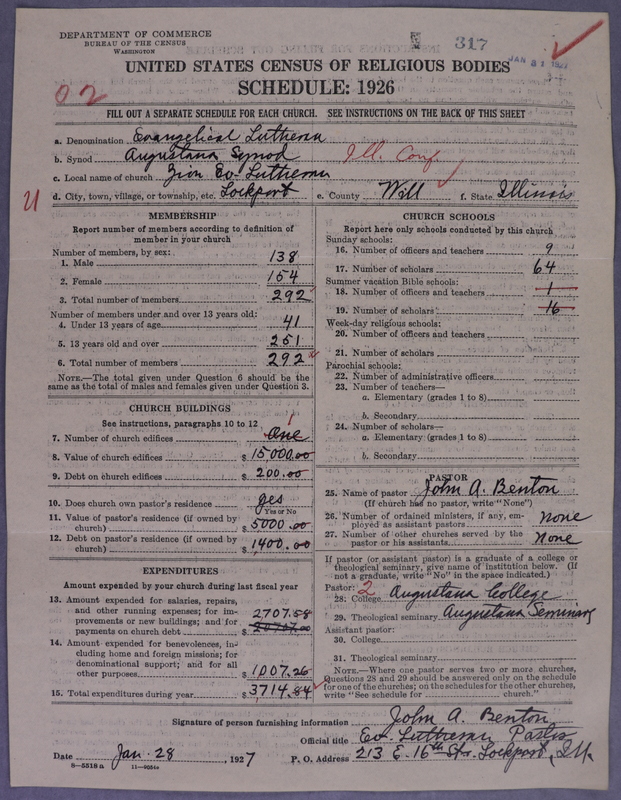 DEPARTMENT OF COMMERCE
BUREAU OF THE CENSUS
WASHINGTON
317
JAN 31 1927
UNITED STATES CENSUS OF RELIGIOUS BODIES
SCHEDULE: 1926
02
FILL OUT A SEPARATE SCHEDULE FOR EACH CHURCH. SEE INSTRUCTIONS ON THE BACK OF THIS SHEET
a. Denomination Evangelical Lutheran
b. Synod Augustana Synod Ill. Conf.
c. Local name of church Zion Ev. Lutheran
d. City, town, village, or township, etc. Lockport e. County Will f. State Illinois
U
MEMBERSHIP
Report number of members according to definition of
member in your church
Number of members, by sex:
1. Male 138
2. Female 154
3. Total number of members 292
Number of members under and over 13 years old:
4. Under 13 years of age 41
5. 13 years old and over 251
6. Total number of members 292
NOTE.—The total given under Question 6 should be the
same as the total of males and females given under Question 3.
CHURCH BUILDINGS
See instructions, paragraphs 10 to 12
1
7. Number of church edifices One
8. Value of church edifices $ 15000.00
9. Debt on church edifices $ 200.00
10. Does church own pastor's residence yes
Yes or No
11. Value of pastor's residence (if owned by
church) $ 5000.00
12. Debt on pastor's residence (if owned by
church) $ 1400.00
EXPENDITURES
Amount expended by your church during last fiscal year
13. Amount expended for salaries, repairs,
and other running expenses; for im-
provements or new buildings; and for
payments on church debt $ 2707.58
14. Amount expended for benevolences, in-
cluding home and foreign missions; for
denominational support; and for all
other purposes $ 1007.26
15. Total expenditures during year $ 3714.84
CHURCH SCHOOLS
Report here only schools conducted by this church
Sunday schools:
16. Number of officers and teachers 9
17. Number of scholars 64
Summer vacation Bible schools:
18. Number of officers and teachers 1
19. Number of scholars 16
Week-day religious schools:
20. Number of officers and teachers
21. Number of scholars
Parochial schools:
22. Number of administrative officers
23. Number of teachers—
a. Elementary (grades 1 to 8)
b. Secondary
24. Number of scholars—
a. Elementary (grades 1 to 8)
b. Secondary
PASTOR
25. Name of pastor John A. Benton
(If church has no pastor, write "None")
26. Number of ordained ministers, if any, em-
ployed as assistant pastors None
27. Number of other churches served by the
pastor or his assistants None
If pastor (or assistant pastor) is a graduate of a college or
theological seminary, give name of institution below. (If
not a graduate, write "No" in the space indicated.)
Pastor: 2
28. College Augustana College
29. Theological seminary Augustana Seminary
Assistant pastor:
30. College
31. Theological seminary
NOTE.—Where one pastor serves two or more churches,
Questions 28 and 29 should be answered only on the schedule
for one of the churches; on the schedules for the other churches,
write "See schedule for church."
Signature of person furnishing information John A. Benton
Official title Ev. Lutheran Pastor
Date Jan. 28, 1927 P. O. Address 213 E. 16th Str. Lockport, Ill.
8-5518a 11-9054e